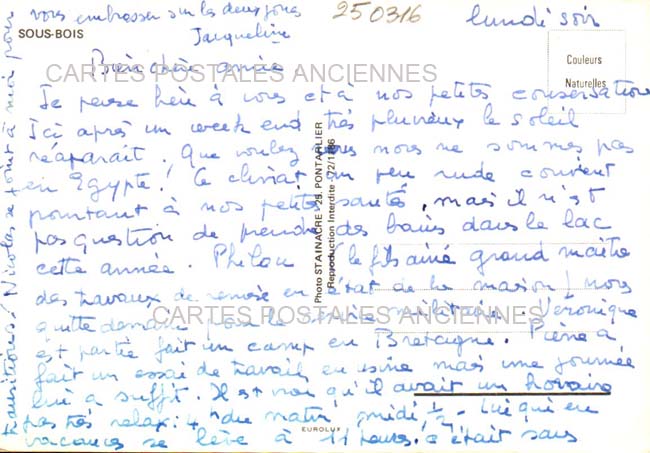 lundi soir
250316
SOUS-BOIS
Couleurs
Naturelles
CARTES POSTALES ANCIENNES
Bien chère amie
Je pense bien à vous et à nos petites conversations
Ici après un week end très pluvieux le soleil
réapparait. Que voulez vous nous ne sommes pas
en Egypte! Ce climat un peu rude convient
pourtant à nos petites santés, mais il n'est
pas question de prendre des bains dans le lac
cette année. (le fils ainé grand maître
des travaux de remise en état de la maison) nous
quitte demain pour le militaire. Véronique
est partie fait un camp en Bretagne. Pierre a
fait un essai de travail en usine mais une journée
lui a suffit. Il est vrai qu'il avait un horaire
pas très relax: 4h du matin midi 1/2 - Lui qui en
vacances se lève à 11 heures. c'était sans
transitions! Nicolas se joint à moi pour
vous embrasser sur les deux joues
Jacqueline
CARTES POSTALES ANCIENNES
Photo STAINACRE - 25. PONTARLIER
Reproduction Interdite - 72/1186
EUROLUX